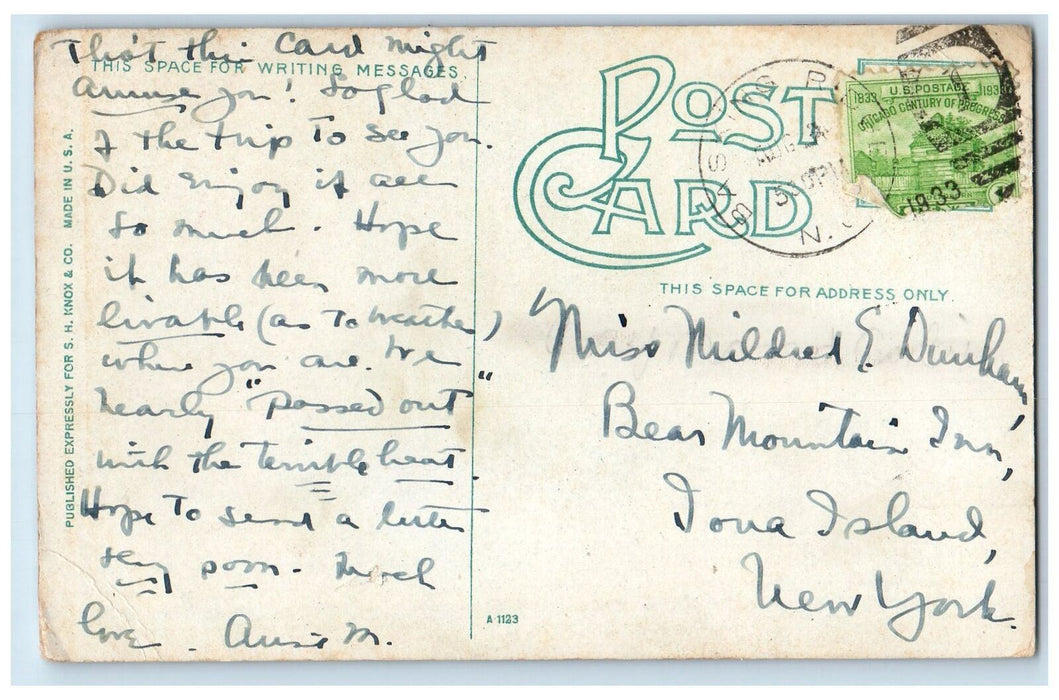 Tho't this Card might
THIS SPACE FOR WRITING MESSAGES
Amuse you! So glad
of the trip to see you.
Did enjoy it all
so much. Hope
it has been more
livable (as to weather)
where you are. We
nearly "passed out"
with the terrible heat.
Hope to send a letter
very soon. Much
love. M.
PUBLISHED EXPRESSLY FOR S. H. KNOX & CO. MADE IN U. S. A.
POST CARD
BASKING
AUG
5 PM
N.
1933
1833 U.S. POSTAGE 193
CHICAGO CENTURY OF PROGRESS
THIS SPACE FOR ADDRESS ONLY
Miss Mildred E. Dunham,
Bear Mountain Inn,
Iona Island,
New York.
A 1123